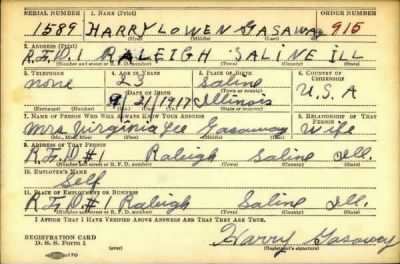 SERIAL NUMBER 1. NAME (Print) ORDER NUMBER
1589 HARRY LOWEN GASAWAY 915
(First) (Middle) (Last)
2. ADDRESS (Print)
R.F.D. 1 RALEIGH SALINE ILL
(Number and street or R. F. D. number) (Town) (County) (State)
3. TELEPHONE 4. AGE IN YEARS 5. PLACE OF BIRTH 6. COUNTRY OF CITIZENSHIP
none 23 Saline
DATE OF BIRTH (Town or county)
9 21 1917 Illinois U.S.A
(Exchange) (Number) (Mo.) (Day) (Yr.) (State or country)
7. NAME OF PERSON WHO WILL ALWAYS KNOW YOUR ADDRESS 8. RELATIONSHIP OF THAT PERSON
Mrs Virginia Lee Gasaway Wife
(Mr., Mrs., Miss) (First) (Middle) (Last)
9. ADDRESS OF THAT PERSON
R.F.D. #1 Raleigh Saline Ill.
(Number and street or R. F. D. number) (Town) (County) (State)
10. EMPLOYER'S NAME
Self
11. PLACE OF EMPLOYMENT OR BUSINESS
R.F.D. #1 Raleigh Saline Ill.
(Number and street or R. F. D. number) (Town) (County) (State)
I AFFIRM THAT I HAVE VERIFIED ABOVE ANSWERS AND THAT THEY ARE TRUE.
REGISTRATION CARD
D. S. S. Form 1 (over) Harry Gasaway
(Registrant's signature)